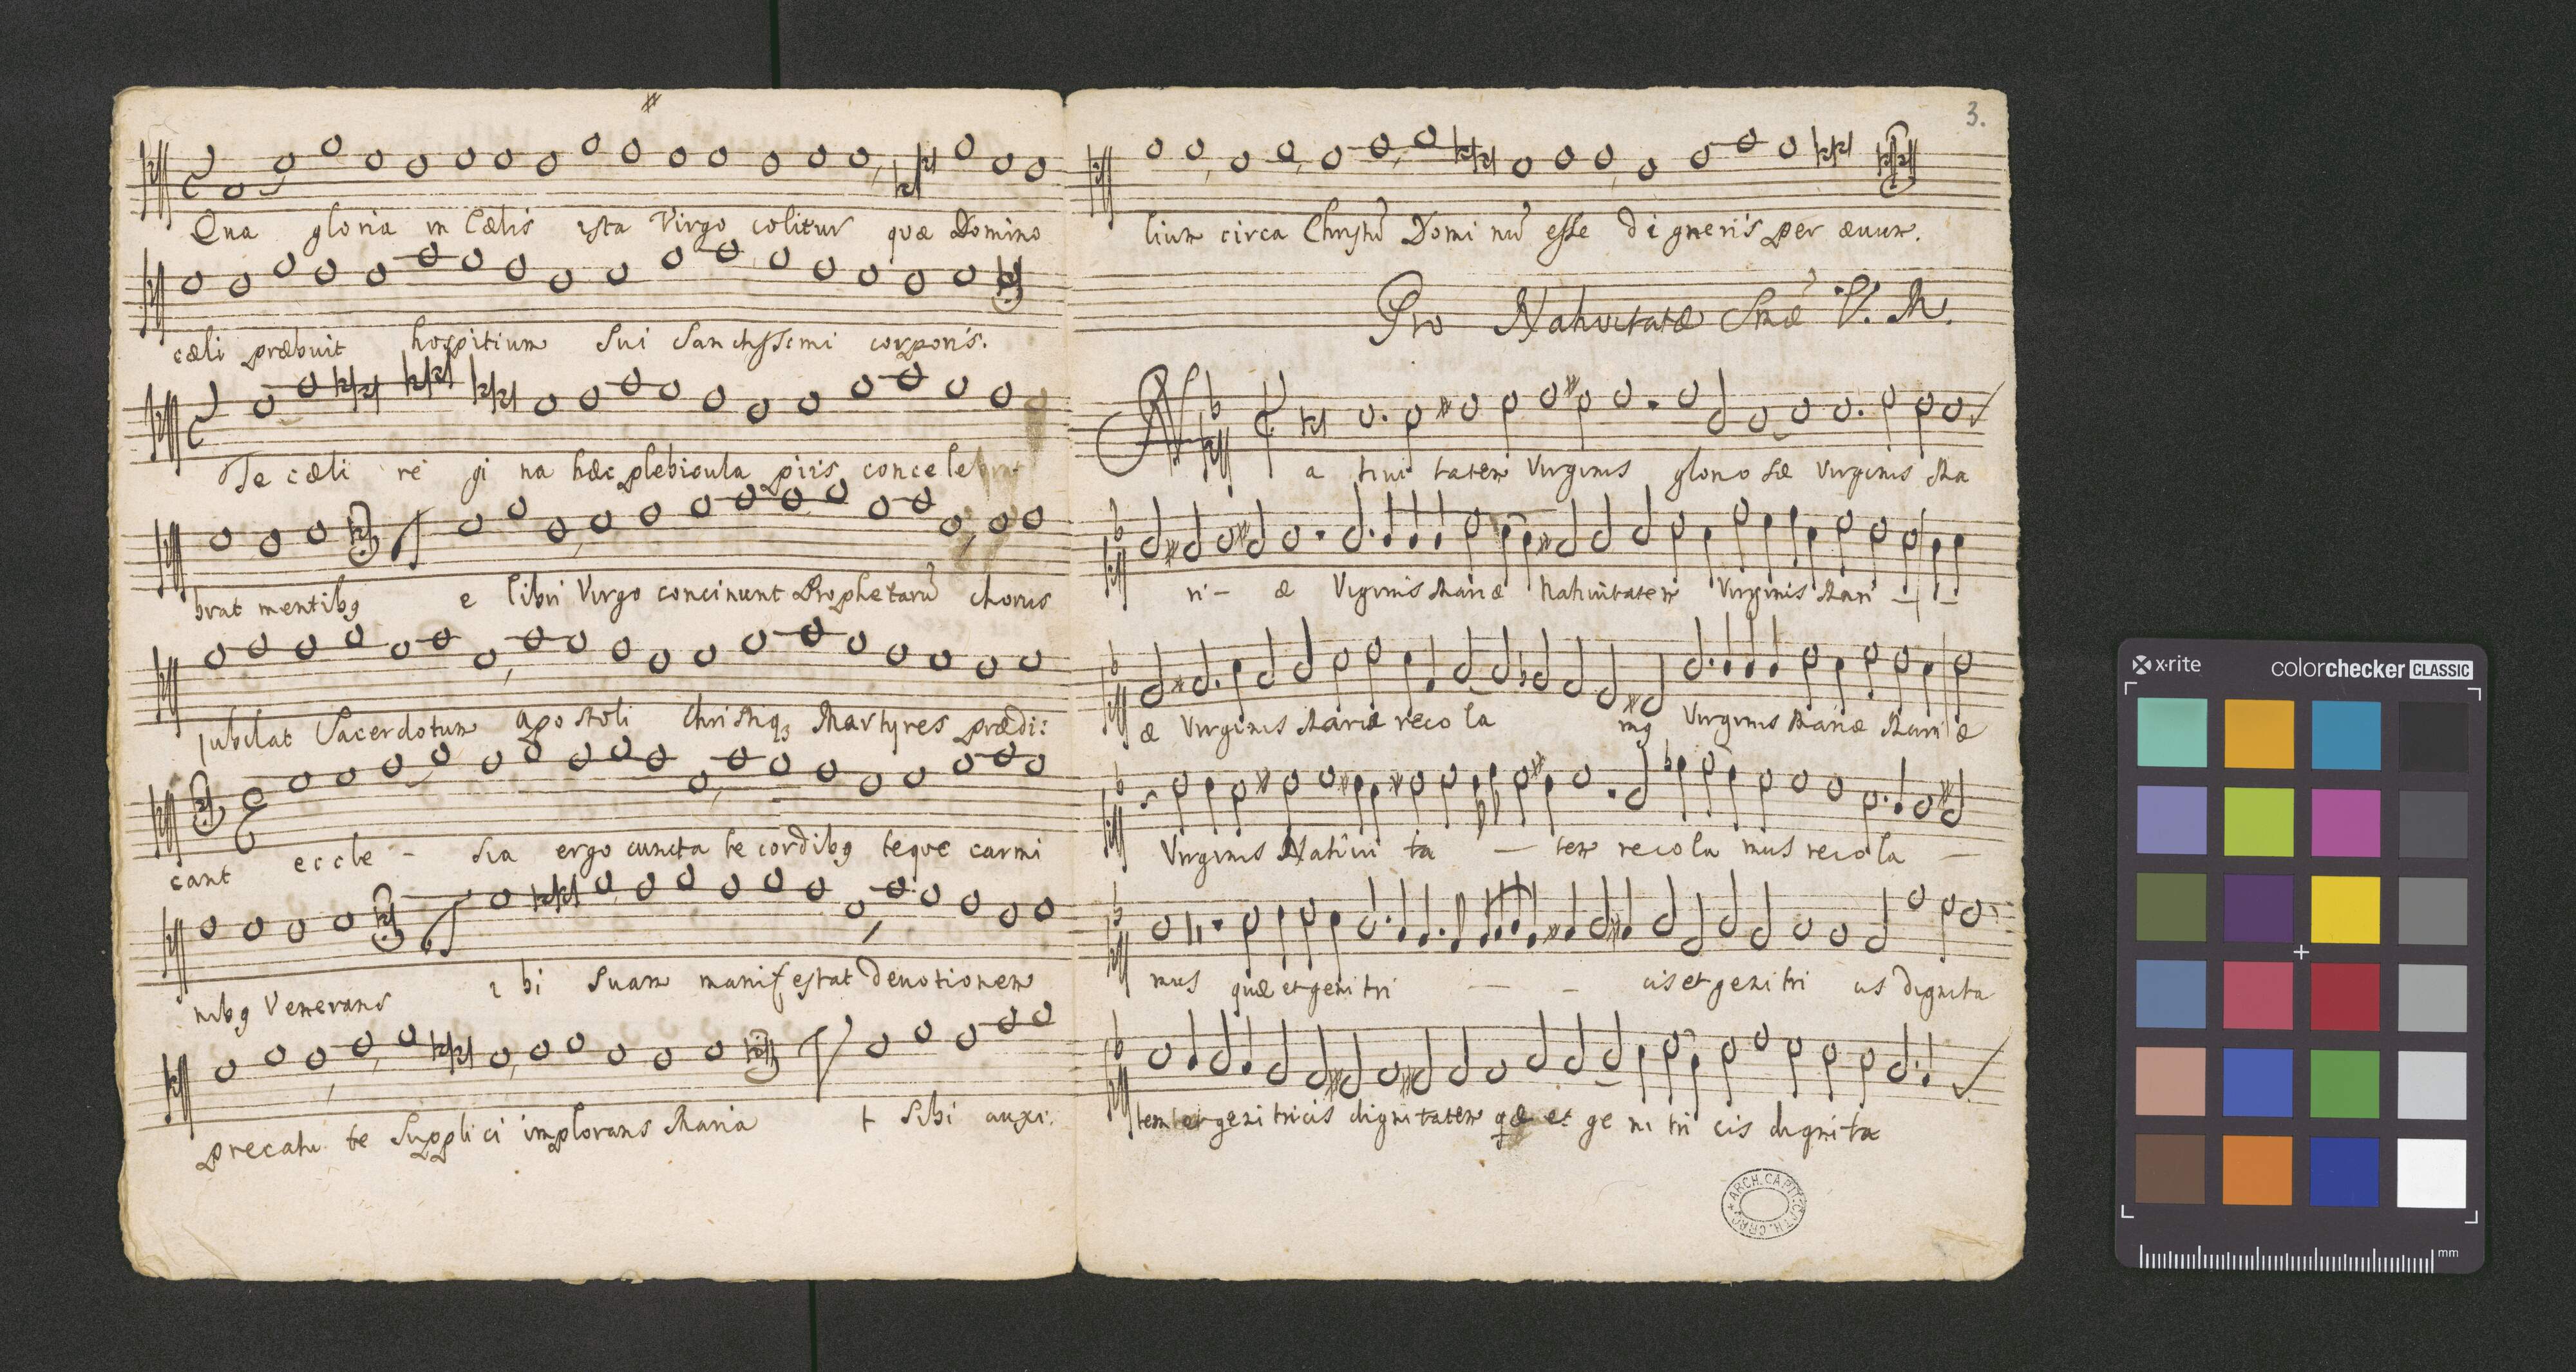 Qua gloria in Cælis ista Virgo colitur quæ Domino
cæli præbuit hospitium sui sanctissimi corporis.
Te cæli regina hæc plebicula piis concelebrat
brat mentibg
e libri Virgo concinunt Prophetarũ chorus
jubilat Sacerdotum apostoli Christiqz Martyres prædi:
cant eccle - sia ergo cuncta te cordibg teque carmi
nibg Venerans
ibi suam manifestat devotionem
precatu te supplici implorans Maria
t sibi auxi:
3.
lium circa Christũ Dominũ esse digneris per ævum.
Pro Nativitatæ Smæ V. M.
Nativitatem Virginis gloriosæ Virginis Ma
ri - æ Virginis Mariæ Nativitatem Virginis Mari - -
æ Virginis Mariæ recola mg Virginis Mariæ Mariæ
Virginis Nativita - tem recolamus recola -
mus quæ et genitri - - cis et genitricis dignita
tem et genitricis dignitatem quæ et genitricis dignita
ARCH. CAPIT. CATH. CRAC.
x·rite
colorchecker CLASSIC
mm